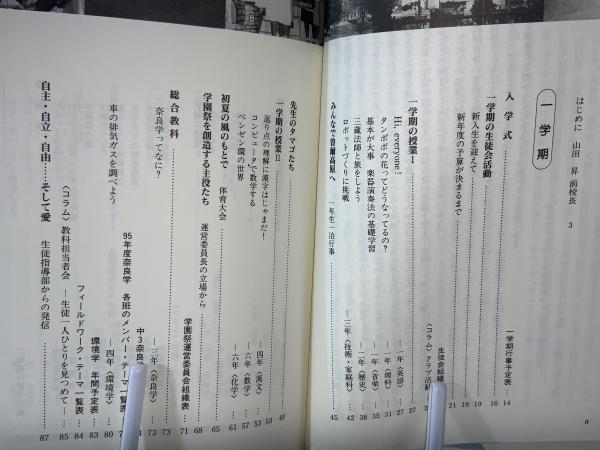 はじめに 山田 昇 前校長 3
一学期
一学期行事予定表 14
入学式 16
一学期の生徒会活動 19
新入生を迎えて 19
新年度の予算が決まるまで 21
生徒会組織
〈コラム〉クラブ活動
一学期の授業Ⅰ 27
Hi, everyone! ―一年〈英語〉 27
タンポポの花ってどうなってるの? ―一年〈理科〉 31
基本が大事 楽器演奏法の基礎学習 ―一年〈音楽〉 35
三蔵法師と旅をしよう ―二年〈歴史〉 38
ロボットづくりに挑戦 ―三年〈技術・家庭科〉 42
みんなで曽爾高原へ 一年生一泊行事 45
8
先生のタマゴたち 49
一学期の授業Ⅱ 53
返り点の理解に漢字はじゃまだ! ―四年〈漢文〉 53
コンピュータで数学する ―六年〈数学〉 57
ベンゼン環の世界 ―六年〈化学〉 61
初夏の風のもとで 体育大会 65
学園祭を創造する主役たち 運営委員長の立場から 68
学園祭運営委員会組織表 71
総合教科 73
奈良学ってなに? ―三年〈奈良学〉 73
中3奈良
95年度奈良学 各班のメンバー・テーマ一覧表
車の排気ガスを調べよう ―四年〈環境学〉 80
環境学 年間予定表 83
フィールドワーク・テーマ一覧表 84
〈コラム〉教科担当者会 ―生徒一人ひとりを見つめて― 85
自主・自立・自由……そして愛 生徒指導部からの発信 87